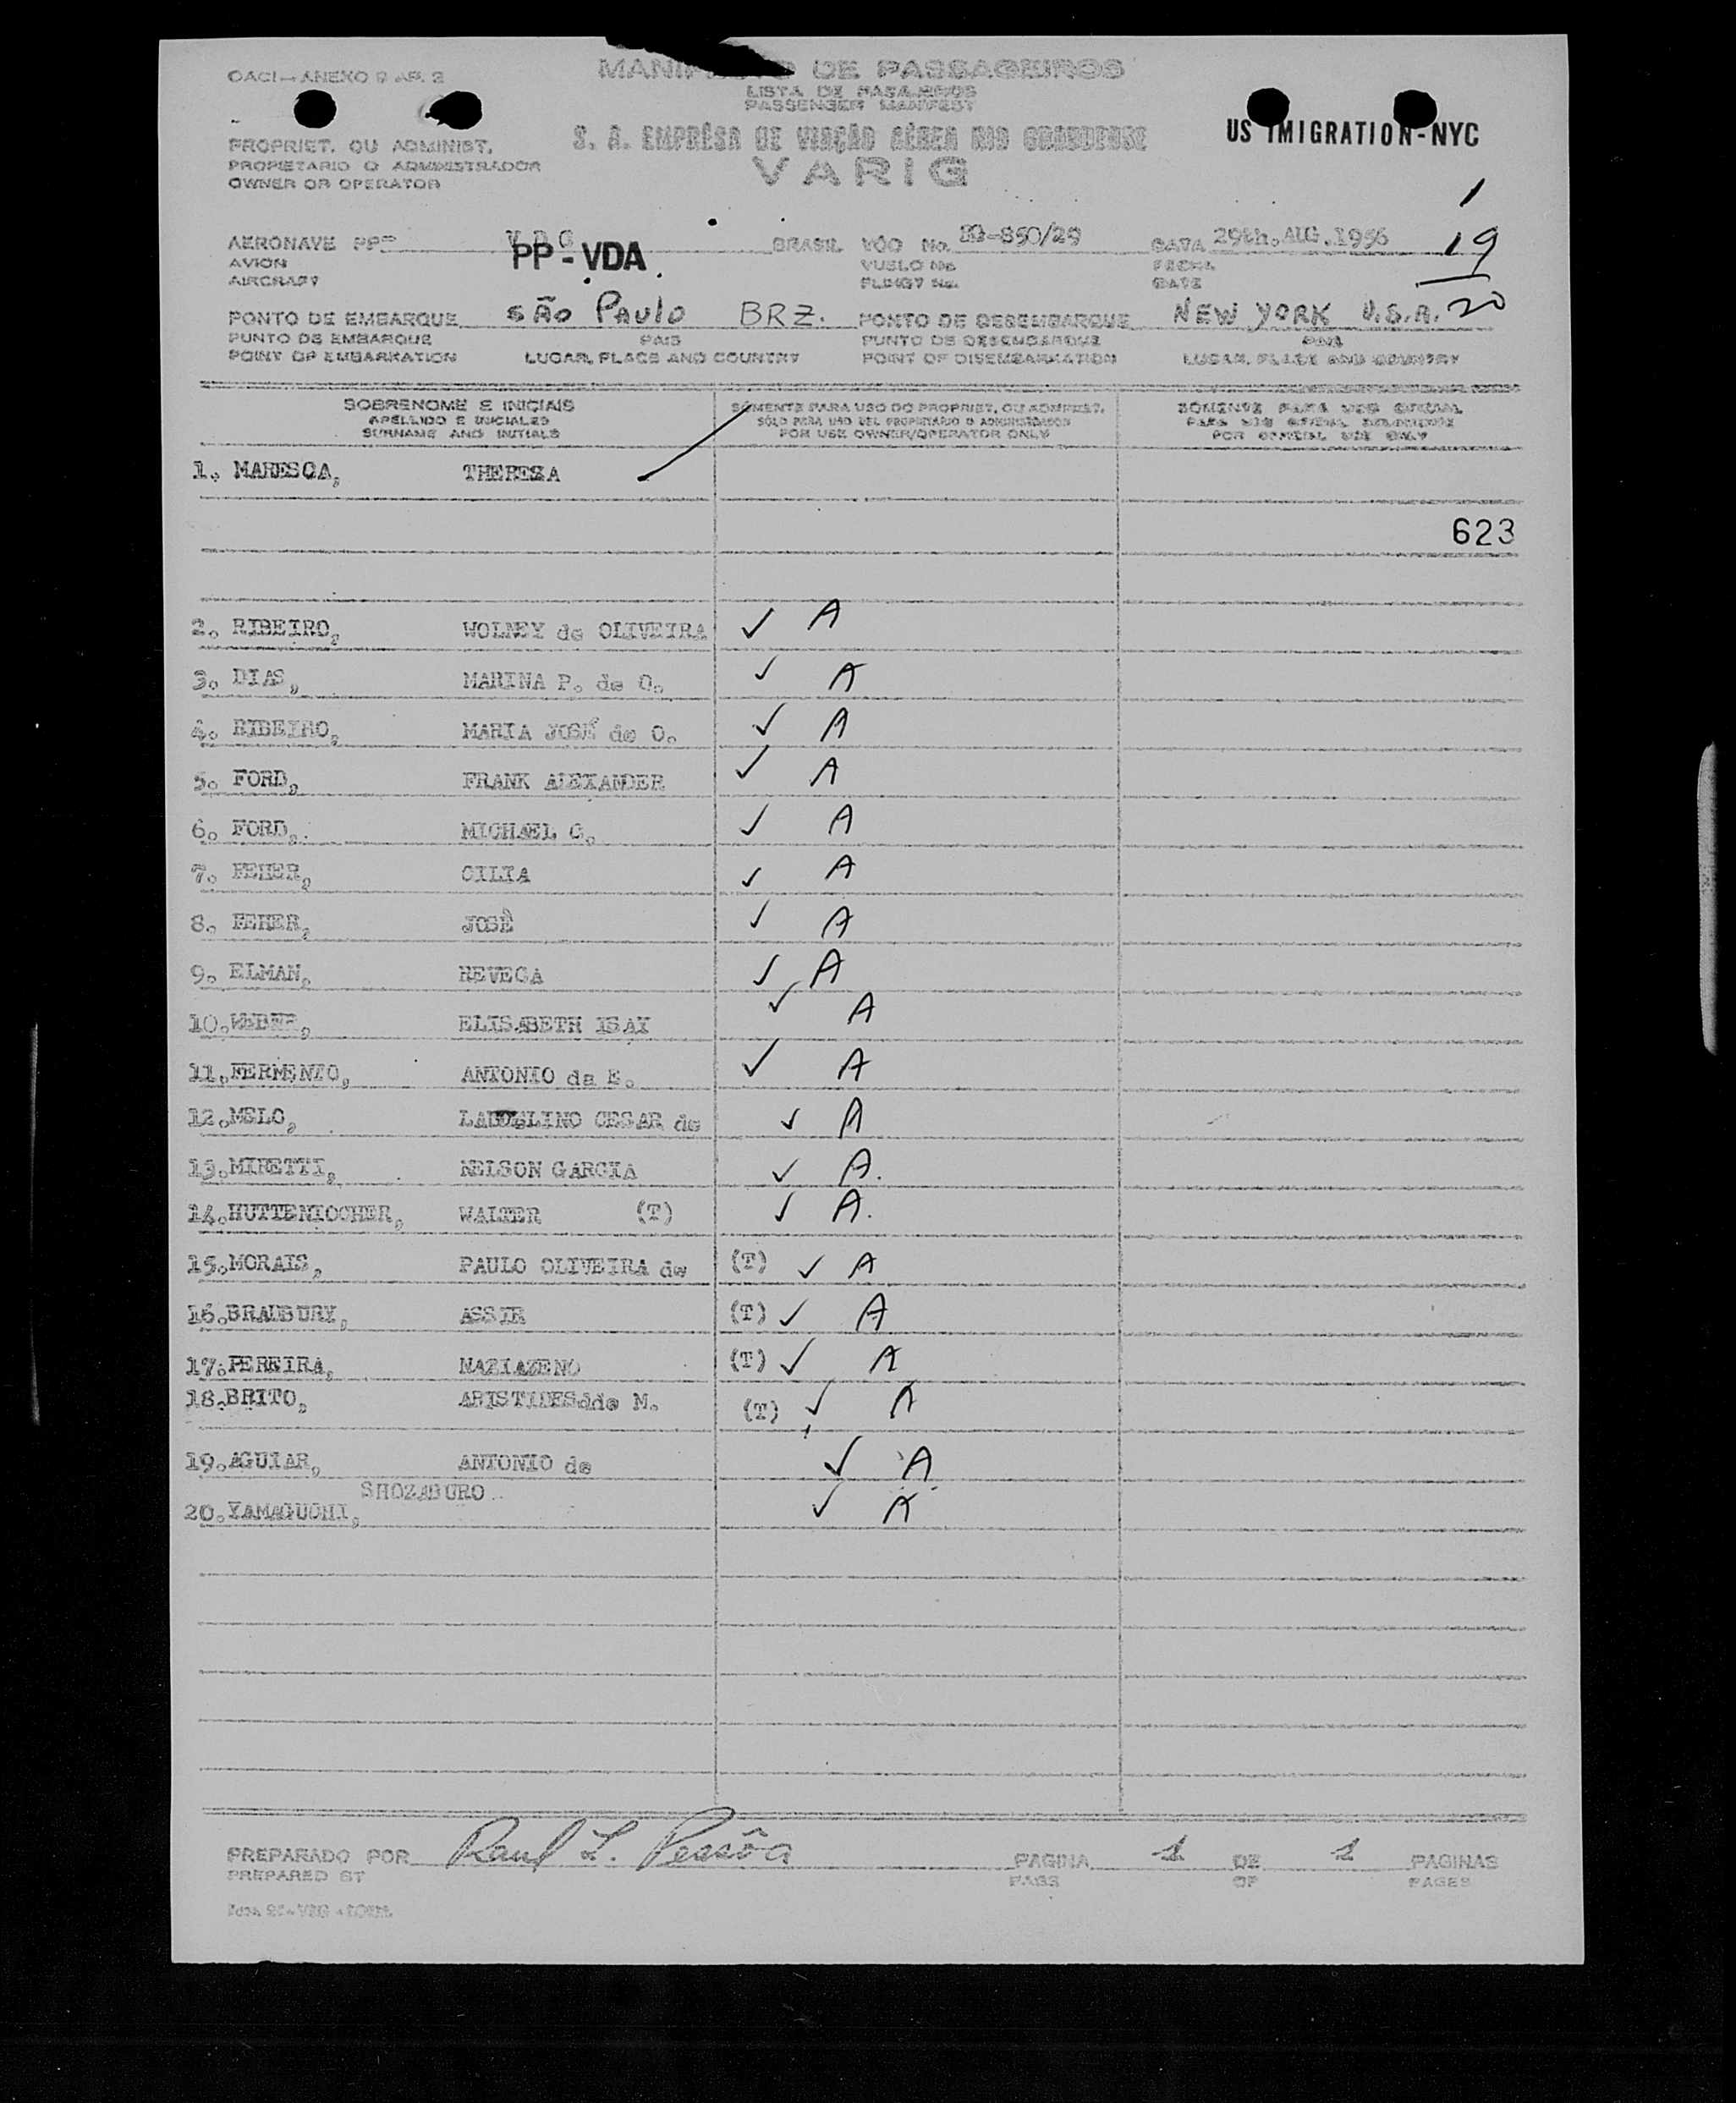 OACI — ANEXO 9 AP. 2
DE PASSAGEIROS
LISTA DE PASAJEROS
PASSENGER MANIFEST
US IMIGRATION-NYC
PROPRIET. OU ADMINIST.
PROPIETARIO O ADMINISTRADOR
OWNER OR OPERATOR
S. A. EMPRÊSA DE VIAÇÃO AÉREA RIO GRANDENSE
VARIG
1
AERONAVE PP- PP-VDA BRASIL VÔO No. RG-850/29 DATA 29th. AUG. 1956 19
AVION VUELO No. FECHA
AIRCRAFT FLIGHT No. DATE
PONTO DE EMBARQUE SÃO PAULO BRZ. PONTO DE DESEMBARQUE NEW YORK U.S.A. 20
PUNTO DE EMBARQUE PAIS PUNTO DE DESEMBARQUE PAIS
POINT OF EMBARKATION LUGAR, PLACE AND COUNTRY POINT OF DISEMBARKATION LUGAR, PLACE AND COUNTRY
SOBRENOME E INICIAIS SÓMENTE PARA USO DO PROPRIET. OU ADMINIST. SÓMENTE PARA USO OFICIAL
APELLIDO E INICIALES SÓLO PARA USO DEL PROPIETARIO O ADMINISTRADOR PARA USO OFICIAL SOLAMENTE
SURNAME AND INITIALS FOR USE OWNER/OPERATOR ONLY FOR OFFICIAL USE ONLY
1. MARESCA, THEREZA
623
2. RIBEIRO, WOLNEY de OLIVEIRA ✓ A
3. DIAS, MARINA P. de O. ✓ A
4. RIBEIRO, MARIA JOSÉ de O. ✓ A
5. FORD, FRANK ALEXANDER ✓ A
6. FORD, MICHAEL G. ✓ A
7. FEHER, CILIA ✓ A
8. FEHER, JOSÉ ✓ A
9. ELMAN, REVECA ✓ A
10. WEBER, ELISABETH ISAY ✓ A
11. FERMENTO, ANTONIO da E. ✓ A
12. MELO, CESAR de ✓ A
13. MINETTI, NELSON GARCIA ✓ A.
14. HUTTENLOCHER, WALTER (T) ✓ A.
15. MORAIS, PAULO OLIVEIRA de (T) ✓ A
16. BRADBURY, ASSIR (T) ✓ A
17. PEREIRA, NAZIAZENO (T) ✓ A
18. BRITO, ARISTIDES de M. (T) ✓ A
19. AGUIAR, ANTONIO de ✓ A
20. YAMAGUCHI, SHOZABURO ✓ A
PREPARADO POR Raul L. Pessôa PAGINA 1 DE 1 PAGINAS
PREPARED BY PAGE OF PAGES